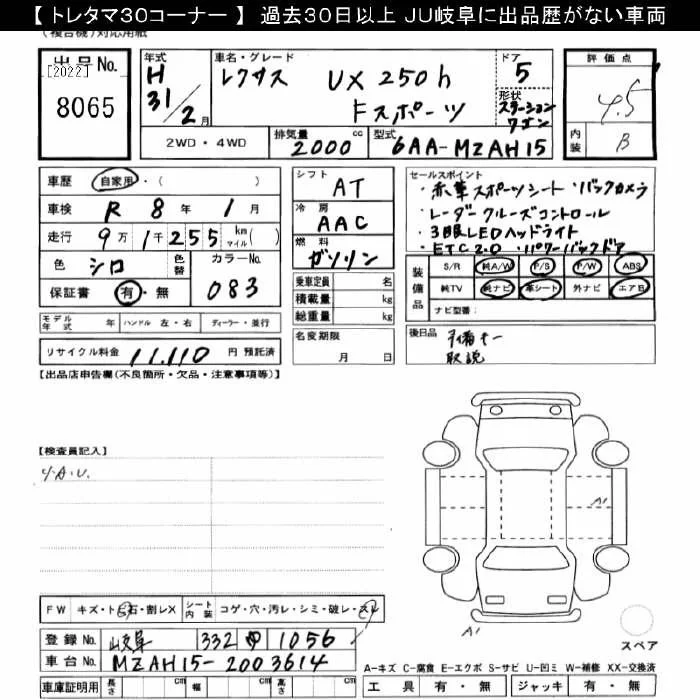 【 トレタマ30コーナー 】 過去30日以上 JU岐阜に出品歴がない車両
(複合機)対応用紙
出品No. [2022] 8065
年式 H 31/2月
車名・グレード レクサス UX 250h Fスポーツ
ドア 5
形状 ステーションワゴン
評価点 4.5
内装 B
2WD・4WD
排気量 2000 cc
型式 6AA-MZAH15
車歴 自家用・( )
車検 R 8年 1月
走行 9万1千255 km マイル( )
色 シロ 色替 カラーNo. 083
保証書 有・無
シフト AT
冷房 AAC
燃料 ガソリン
乗車定員 名
積載量 kg
総重量 kg
セールスポイント
・赤革スポーツシート ・バックカメラ
・レーダークルーズコントロール
・3眼LEDヘッドライト
・ETC2.0 ・パワーバックドア
装備品 S/R 純A/W P/S P/W ABS
純TV 純ナビ 革シート 外ナビ エアB
ナビ型番:
モデル年式 年 ハンドル 左・右 ディーラー・並行
リサイクル料金 11,110 円 預託済
名変期限 月 日
後日品 予備キー
取説
【出品店申告欄(不良箇所・欠品・注意事項等)】
【検査員記入】
A1
A1
FW キズ・ト石・割レX シート内装 コゲ・穴・汚レ・シミ・破レ・スレ
登録No. 岐阜 332 1056
車台No. MZAH15-2003614
車庫証明用 長さ cm 幅 cm 高さ cm
スペア
A-キズ C-腐食 E-エクボ S-サビ U-凹ミ W-補修 XX-交換済
工具 有・無 ジャッキ 有・無